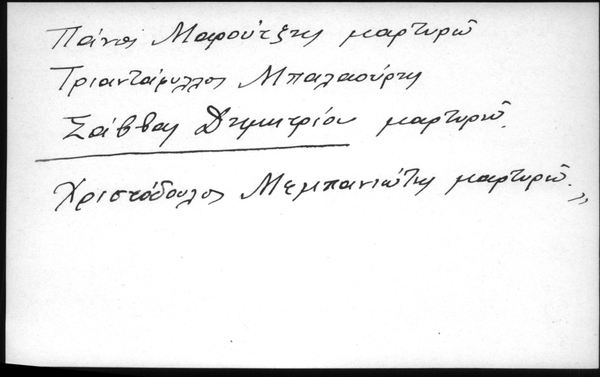 Πάνος Μαρούτξης μαρτυρῶ
Τριαντάφυλλος Μπαλαούρης
Σάββας Δημητρίου μαρτυρῶ.
Χριστόδουλος Μεμπανιώτης μαρτυρῶ.»